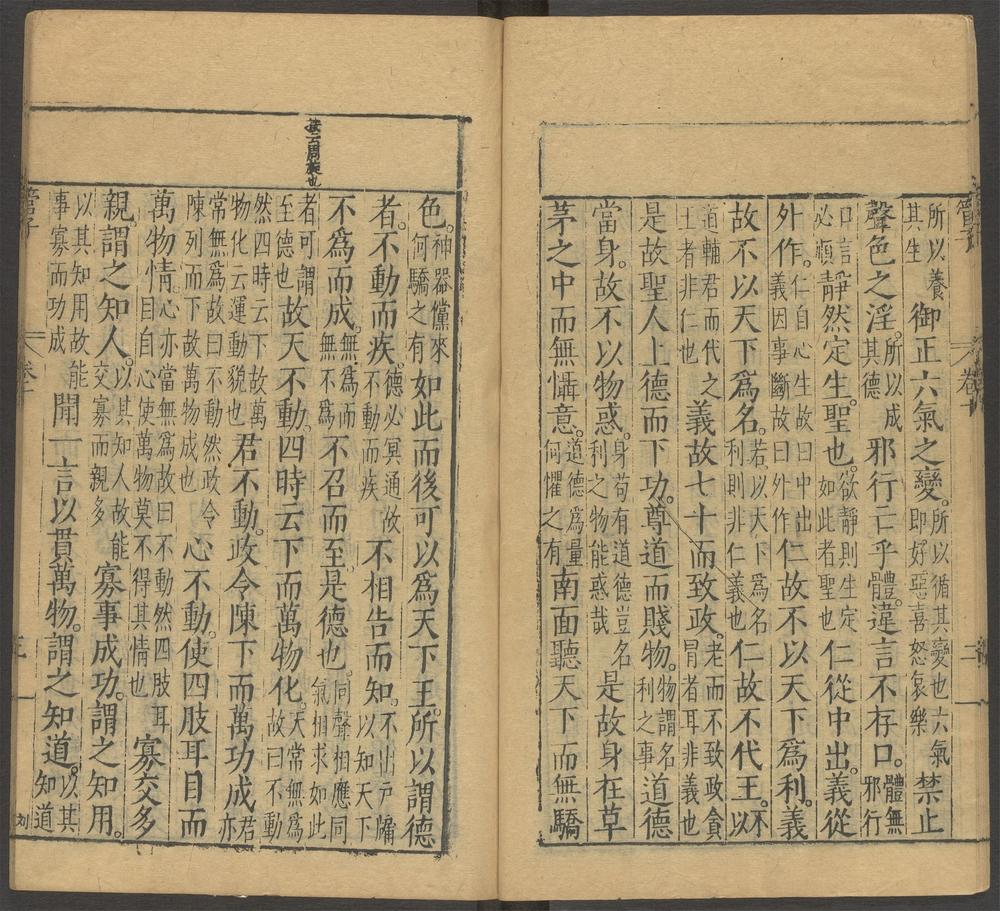 管子
卷十
所以養
其生
御正六氣之變。
所以循其變也六氣
即好惡喜怒哀樂
禁止
聲色之淫。
所以成
其德
邪行亡乎體。違言不存口。
體無
邪行
口言
必順
靜然定生。聖也。
欲靜則生定
如此者聖也
仁從中出。義從
外作。
仁自心生故曰中出
義因事斷故曰外作
仁故不以天下爲利。義
故不以天下爲名。
若以天下爲名
利則非仁義也
仁故不代王。
不以
道輔君而代之
王者非仁也
義故七十而致政。
老而不致政貪
冒者耳非義也
是故聖人上德而下功。尊道而賤物。
物謂名
利之事
道德
當身。故不以物惑。
身苟有道德豈名
利之物能惑哉
是故身在草
茅之中而無懾意。
道德爲量
何懼之有
南面聽天下而無驕
色。
神器儻來
何驕之有
如此而後可以爲天下王。所以謂德
者。不動而疾。
德必冥通故
不動而疾
不相告而知。
不出戶牖
以知天下
不爲而成。
無爲而
無不爲
不召而至。是德也。
同聲相應同
氣相求如此
者可謂
至德也
故天不動。四時云下而萬物化。
天常無爲
故曰不動
然四時云下故萬
物化云運動貌也
君不動。政令陳下而萬功成。
君
亦
常無爲故曰不動然政令
陳列而下故萬物成也
心不動。使四肢耳目而
萬物情。
心亦當無爲故曰不動然四肢耳
目自心使萬物莫不得其情也
寡交多
親。謂之知人。
以其知人故能
交寡而親多
寡事成功。謂之知用。
以其知用故能
事寡而功成
聞一言以貫萬物。謂之知道。
以其
知道
管子